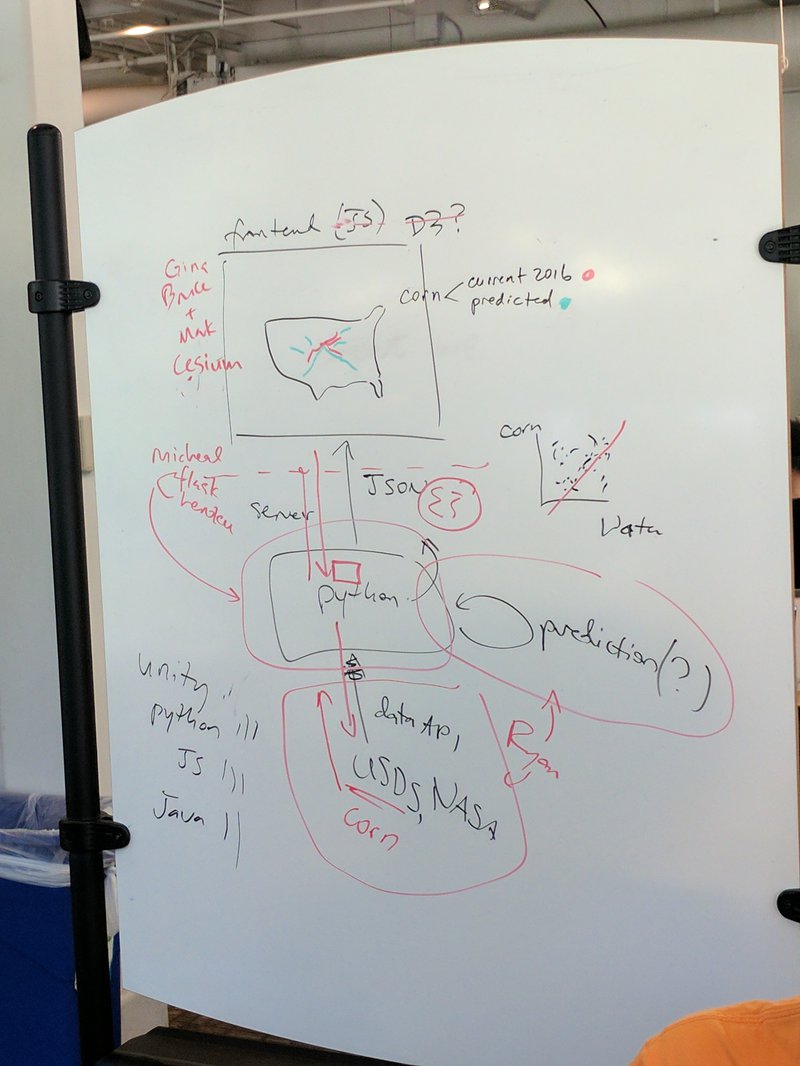 frontend (JS) D3?
Gina
Bruce
+
Mark
Cesium
corn < current 2016
predicted
Micheal
flask
server
JSON
{}
corn
python
prediction (?)
Unity ..
python |||
JS |||
Java ||
data API
Ryan
USDS, NASA
corn